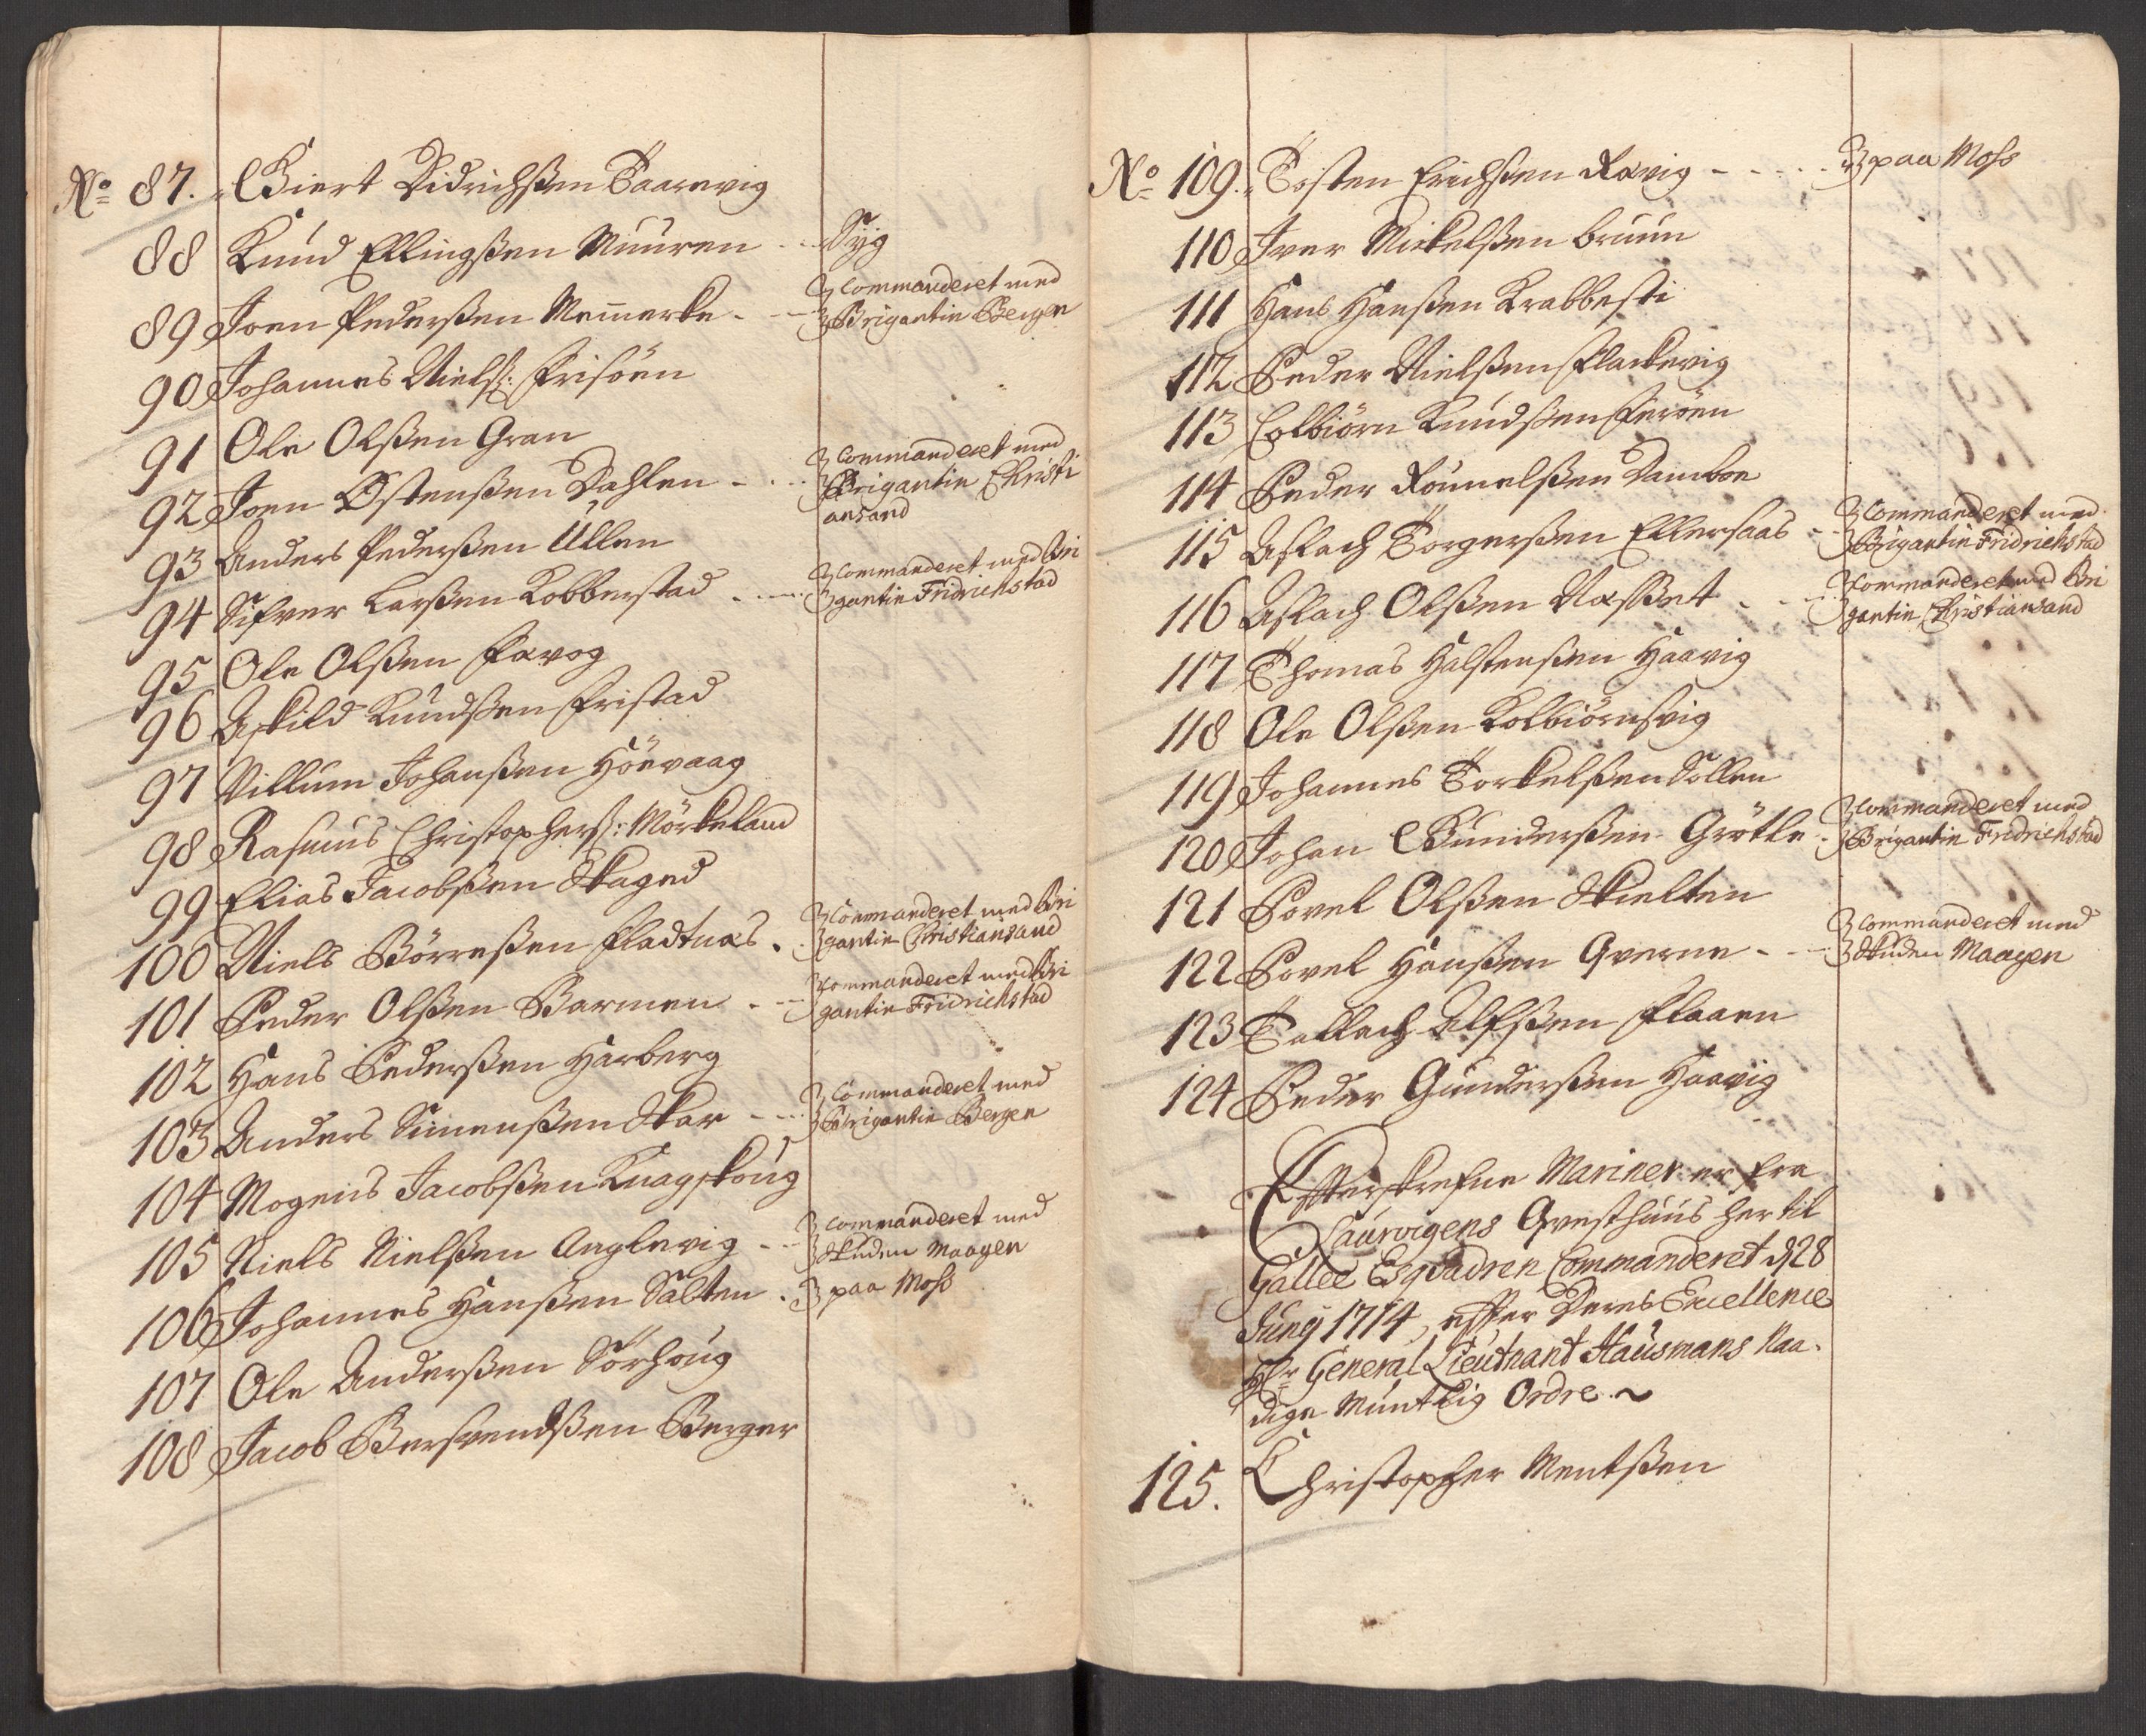 No 87. Giert Didrichßen Taarevig
88 Knud Ellingßen Muuren - - Syg
89 Joen Pederßen Memerke - - Commanderet med
Brigantin Bergen
90 Johannes Nielß: Frisöen
91 Ole Olßen Gran
92 Joen Østenßen Dahlen - - Commanderet med
Brigantin Christi
ansand
93 Anders Pederßen Ullen
94 Sifver Larßen Kobberstad - - Commanderet med Bri
gantin Fridrichstad
95 Ole Olßen Farog
96 Askild Knudßen Fristad
97 Villum Johanßen Höevaag
98 Rasmus Christopherß: Mörkeland
99 Elias Jacobßen Skaged
100 Niels Börreßen Fladnæs - Commanderet med Bri
gantin Christiansand
101 Peder Olßen Barmen - - Commanderet med Bri
gantin Fridrichstad
102 Hans Pederßen Harberg
103 Anders Simenßen Skar - - Commanderet med
Brigantin Bergen
104 Mogens Jacobßen Knagskoug
105 Niels Nielßen Anglevig - - Commanderet med
Skuden Maagen
106 Johannes Hanßen Salten - paa Moss
107 Ole Anderßen Sörhoug
108 Jacob Bersvendßen Berger
No 109. Tosten Erichßen Ravig - - - - paa Moss
110 Iver Mickelßen Bruun
111 Hans Hanßen Krabbesti
112 Peder Nielßen Flackevig
113 Colbiörn Knudßen Feröen
114 Peder Rönnelßen Damboe
115 Aslach Torgerßen Ellersaas - Commanderet med
Brigantin Fridrichstad
116 Aslach Olßen Næsßet - - - Commanderet med Bri
gantin Christiansand
117 Thomas Halstenßen Haavig
118 Ole Olßen Kolbiörnsvig
119 Johannes Torkelßen Sollen
120 Johan Gunderßen Grötle - Commanderet med
Brigantin Fridrichstad
121 Povel Olßen Skielten
122 Povel Hanßen Qverne - - Commanderet med
Skuden Maagen
123 Tallach Ulfßen Flaaen
124 Peder Gunderßen Haavig
Efterskrefne Mariner er fra
Laurvigens Qvesthuus her til
Gallee Esqvadren Commanderet d 28
Junij 1714, efter Deres Excellence
Hr General Lieutnant Hausmans Naa-
dige Muntlig Ordre ~
125. Christopher Mentßen